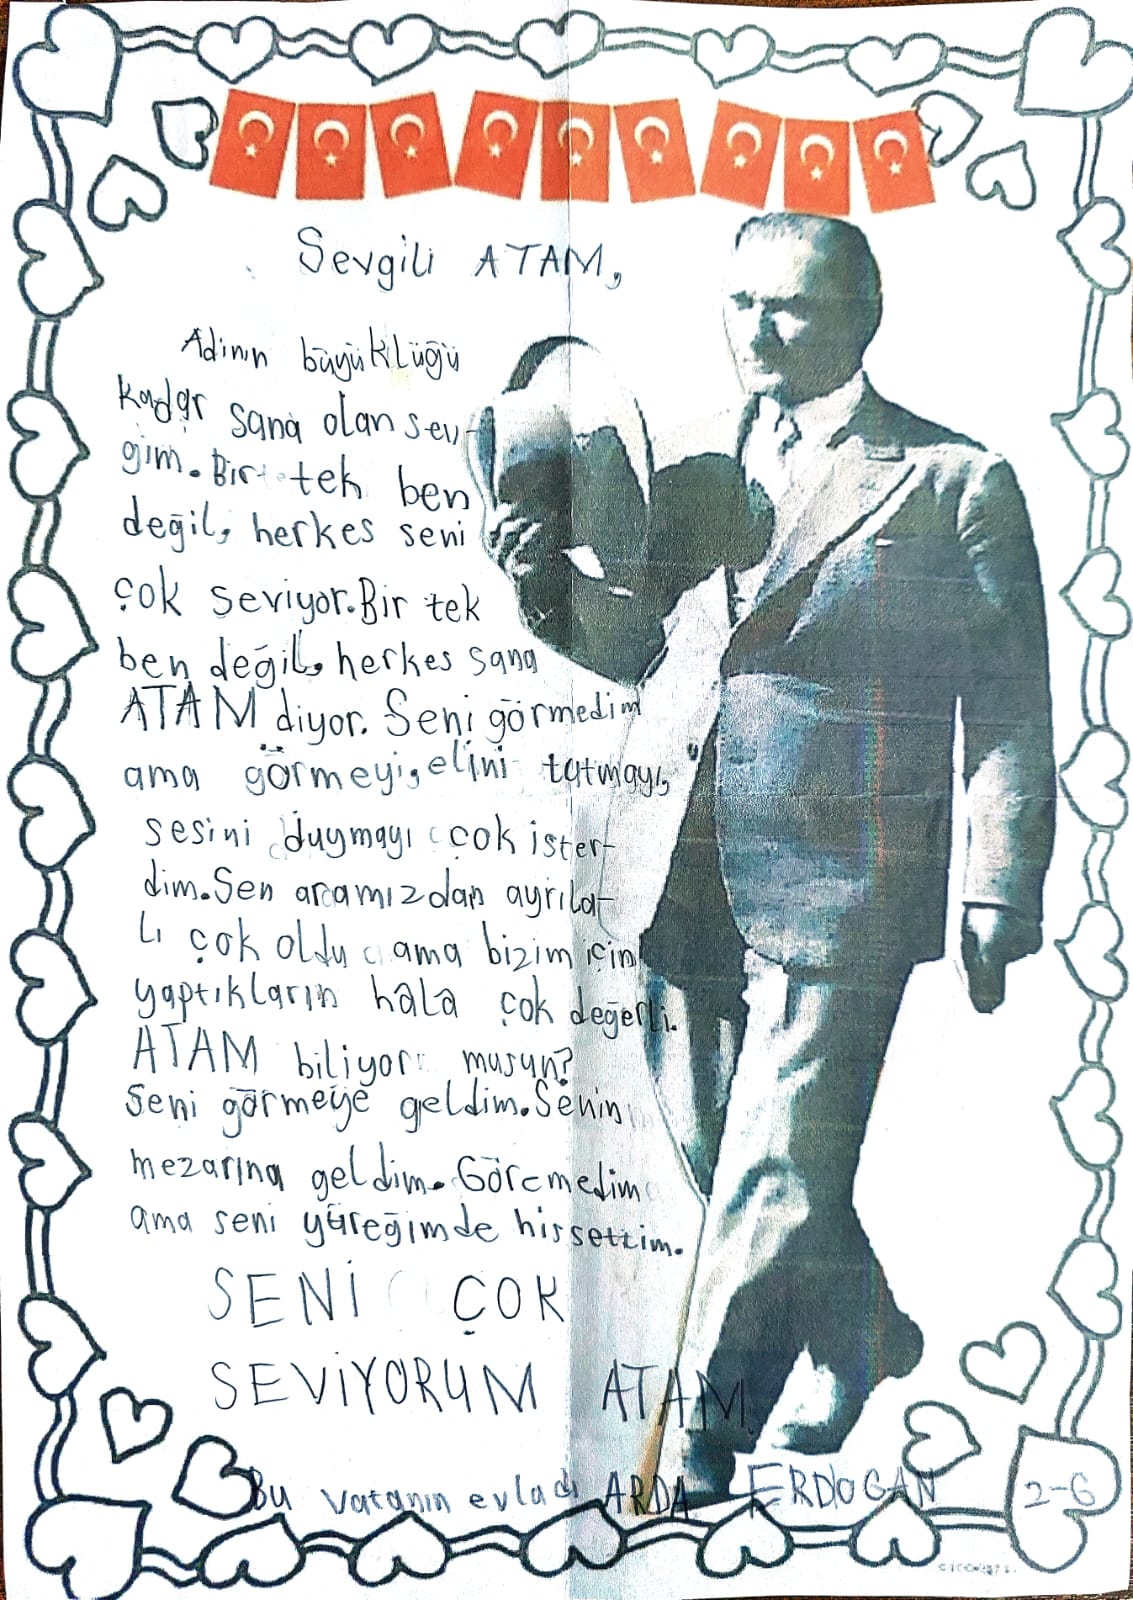 Sevgili ATAM,
Adının büyüklüğü
kadar sana olan sev-
gim. Bir tek ben
değil, herkes seni
çok seviyor. Bir tek
ben değil, herkes sana
ATAM diyor. Seni görmedim
ama görmeyi, elini tutmayı,
sesini duymayı çok ister-
dim. Sen aramızdan ayrıla-
lı çok oldu ama bizim için
yaptıkların hâlâ çok değerli.
ATAM biliyor musun?
Seni görmeye geldim. Senin
mezarına geldim. Göremedim
ama seni yüreğimde hissettim.
SENİ ÇOK
SEVİYORUM ATAM.
Bu vatanın evladı ARDA ERDOĞAN 2-G